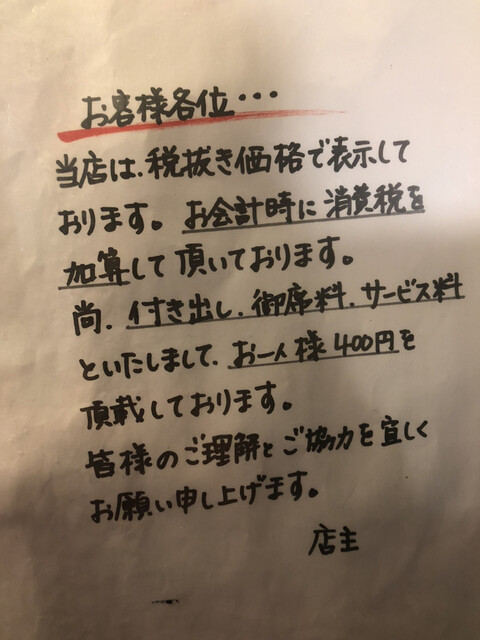 お客様各位・・・
当店は、税抜き価格で表示して
おります。お会計時に消費税を
加算して頂いております。
尚、付き出し、御席料、サービス料
といたしまして、お一人様400円を
頂載しております。
皆様のご理解とご協力を宜しく
お願い申し上げます。
店主